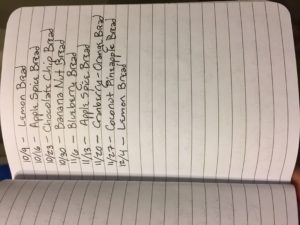 10/9 - Lemon Bread
10/16 - Apple Spice Bread
10/23 - Chocolate Chip Bread
10/30 - Banana Nut Bread
11/6 - Blueberry Bread
11/13 - Apple Spice Bread
11/20 - Cranberry-Orange Bread
11/27 - Coconut Pineapple Bread
12/4 - Lemon Bread